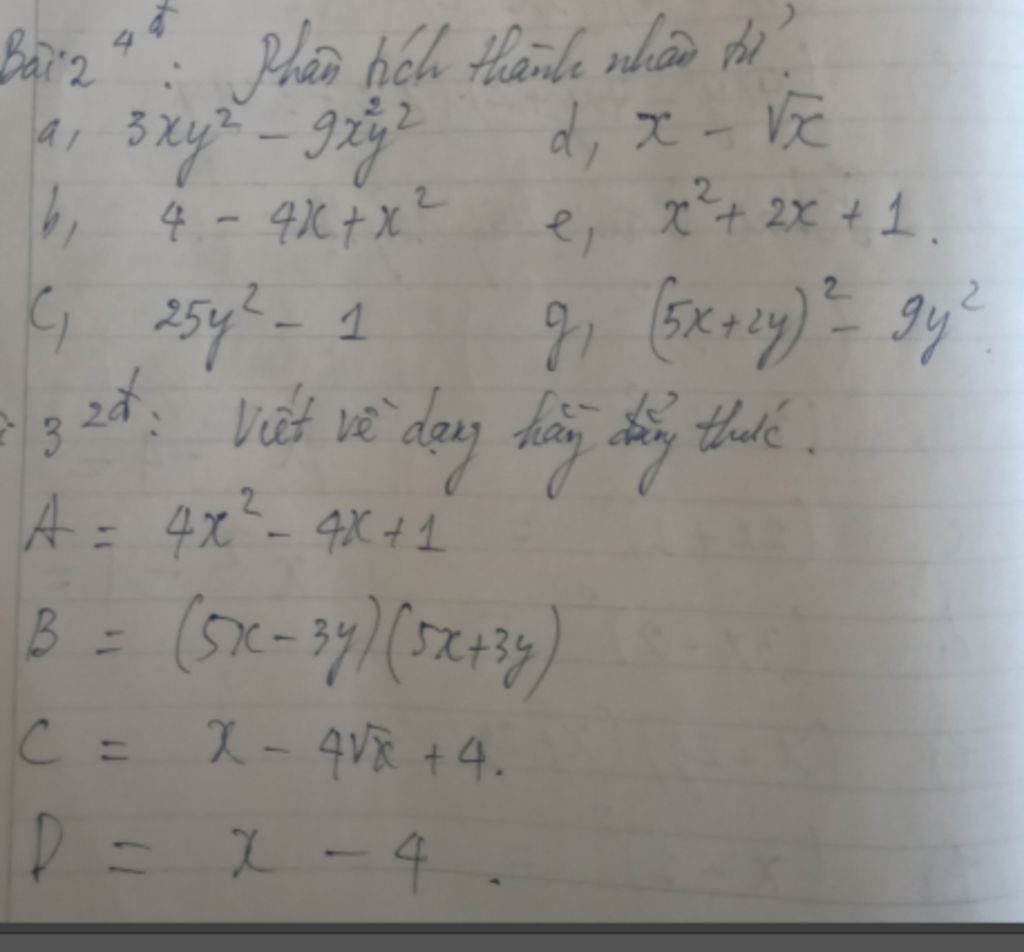 Bài 2 4đ: Phân tích thành nhân tử.
a, 3xy² - 9x²y² d, x - √x
b, 4 - 4x + x² e, x² + 2x + 1.
C, 25y² - 1 g, (5x + 2y)² - 9y².
i 3 2đ: Viết về dạng hằng đẳng thức.
A = 4x² - 4x + 1
B = (5x - 3y)(5x + 3y)
C = x - 4√x + 4.
D = x - 4.